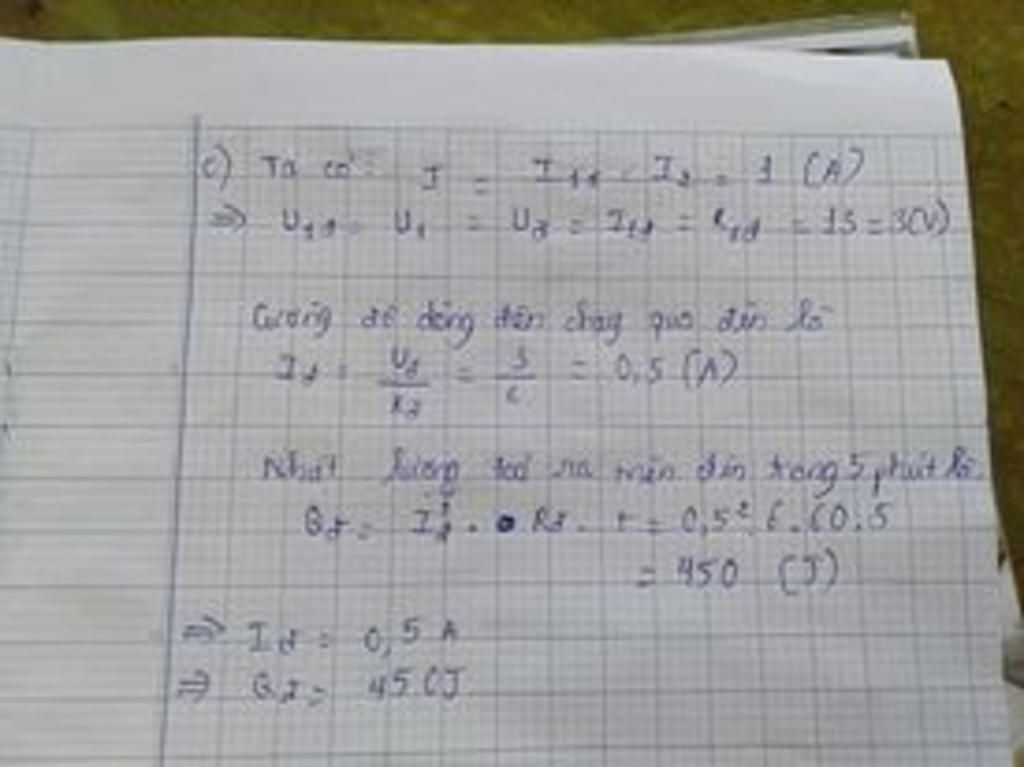 c) Ta có: I = I1đ = I2 = 1 (A)
=> U1đ = U1 = Uđ = I1đ = R1đ = 1.3 = 3(V)
Cường độ dòng điện chạy qua đèn là
Iđ = Uđ/Rđ = 3/6 = 0,5 (A)
Nhiệt lượng toả ra trên đèn trong 5 phút là
Qđ = Iđ². Rđ. t = 0,5². 6.60.5
= 450 (J)
=> Iđ = 0,5 A
=> Qđ = 450J